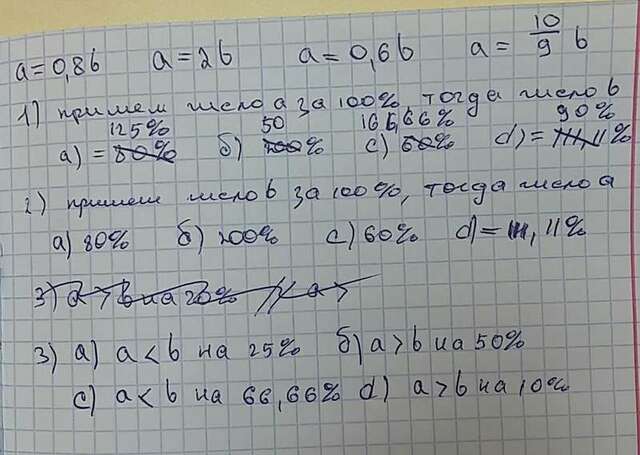 a=0,8b a=2b a=0,6b a=10/9 b
1) примем число a за 100% тогда число b
125% 50 166,66% 90%
а) =80% б) 200% c) 60% d)=111,11%
2) примем число b за 100%, тогда число a
а) 80% б) 200% c) 60% d)=111,11%
3) a > b на 20% // a >
3) а) a < b на 25% б) a > b на 50%
c) a < b на 66,66% d) a > b на 10%